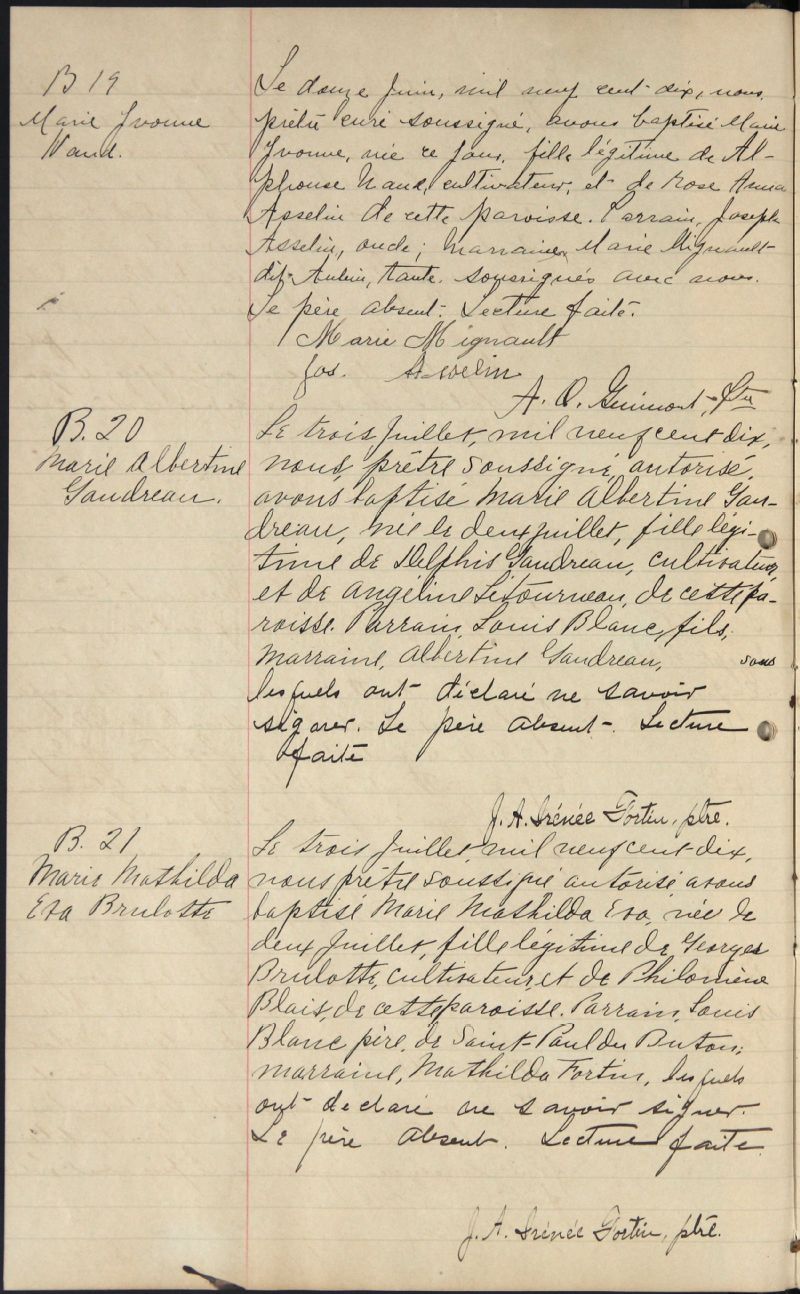 B 19
Marie Yvonne
Naud.
Le douze Juin, mil neuf cent dix, nous,
prêtre curé soussigné, avons baptisé Marie
Yvonne, née ce jour, fille légitime de Al-
phonse Naud, cultivateur, et de Rose Anna
Asselin de cette paroisse. Parrain, Joseph
Asselin, oncle; Marraine, Marie Mignault
dit Aubin, tante. soussignés avec nous.
Le père absent. Lecture faite.
Marie Mignault
Jos. Asselin
A. O. Guimont, Ptre
B. 20
Marie Albertine
Gaudreau.
Le trois Juillet, mil neuf cent dix,
nous, prêtre soussigné, autorisé,
avons baptisé Marie Albertine Gau-
dreau, née le deux juillet, fille légi-
time de Delphis Gaudreau, cultivateur,
et de Angéline Létourneau, de cette pa-
roisse. Parrain, Louis Blanc, fils,
Marraine, Albertine Gaudreau, sous
lesquels ont déclaré ne savoir
signer. Le père absent. Lecture
faite
J. A. Irénée Fortin, ptre.
B. 21
Marie Mathilda
Eva Brulotte
Le trois Juillet, mil neuf cent dix,
nous prêtre soussigné autorisé avons
baptisé Marie Mathilda Eva, née le
deux Juillet, fille légitime de Georges
Brulotte, cultivateur, et de Philomène
Blais, de cette paroisse. Parrain, Louis
Blanc père, de Saint-Paul du Buton;
marraine, Mathilda Fortin, lesquels
ont declaré ne savoir signer.
Le père absent. Lecture faite.
J. A. Irénée Fortin, ptre.